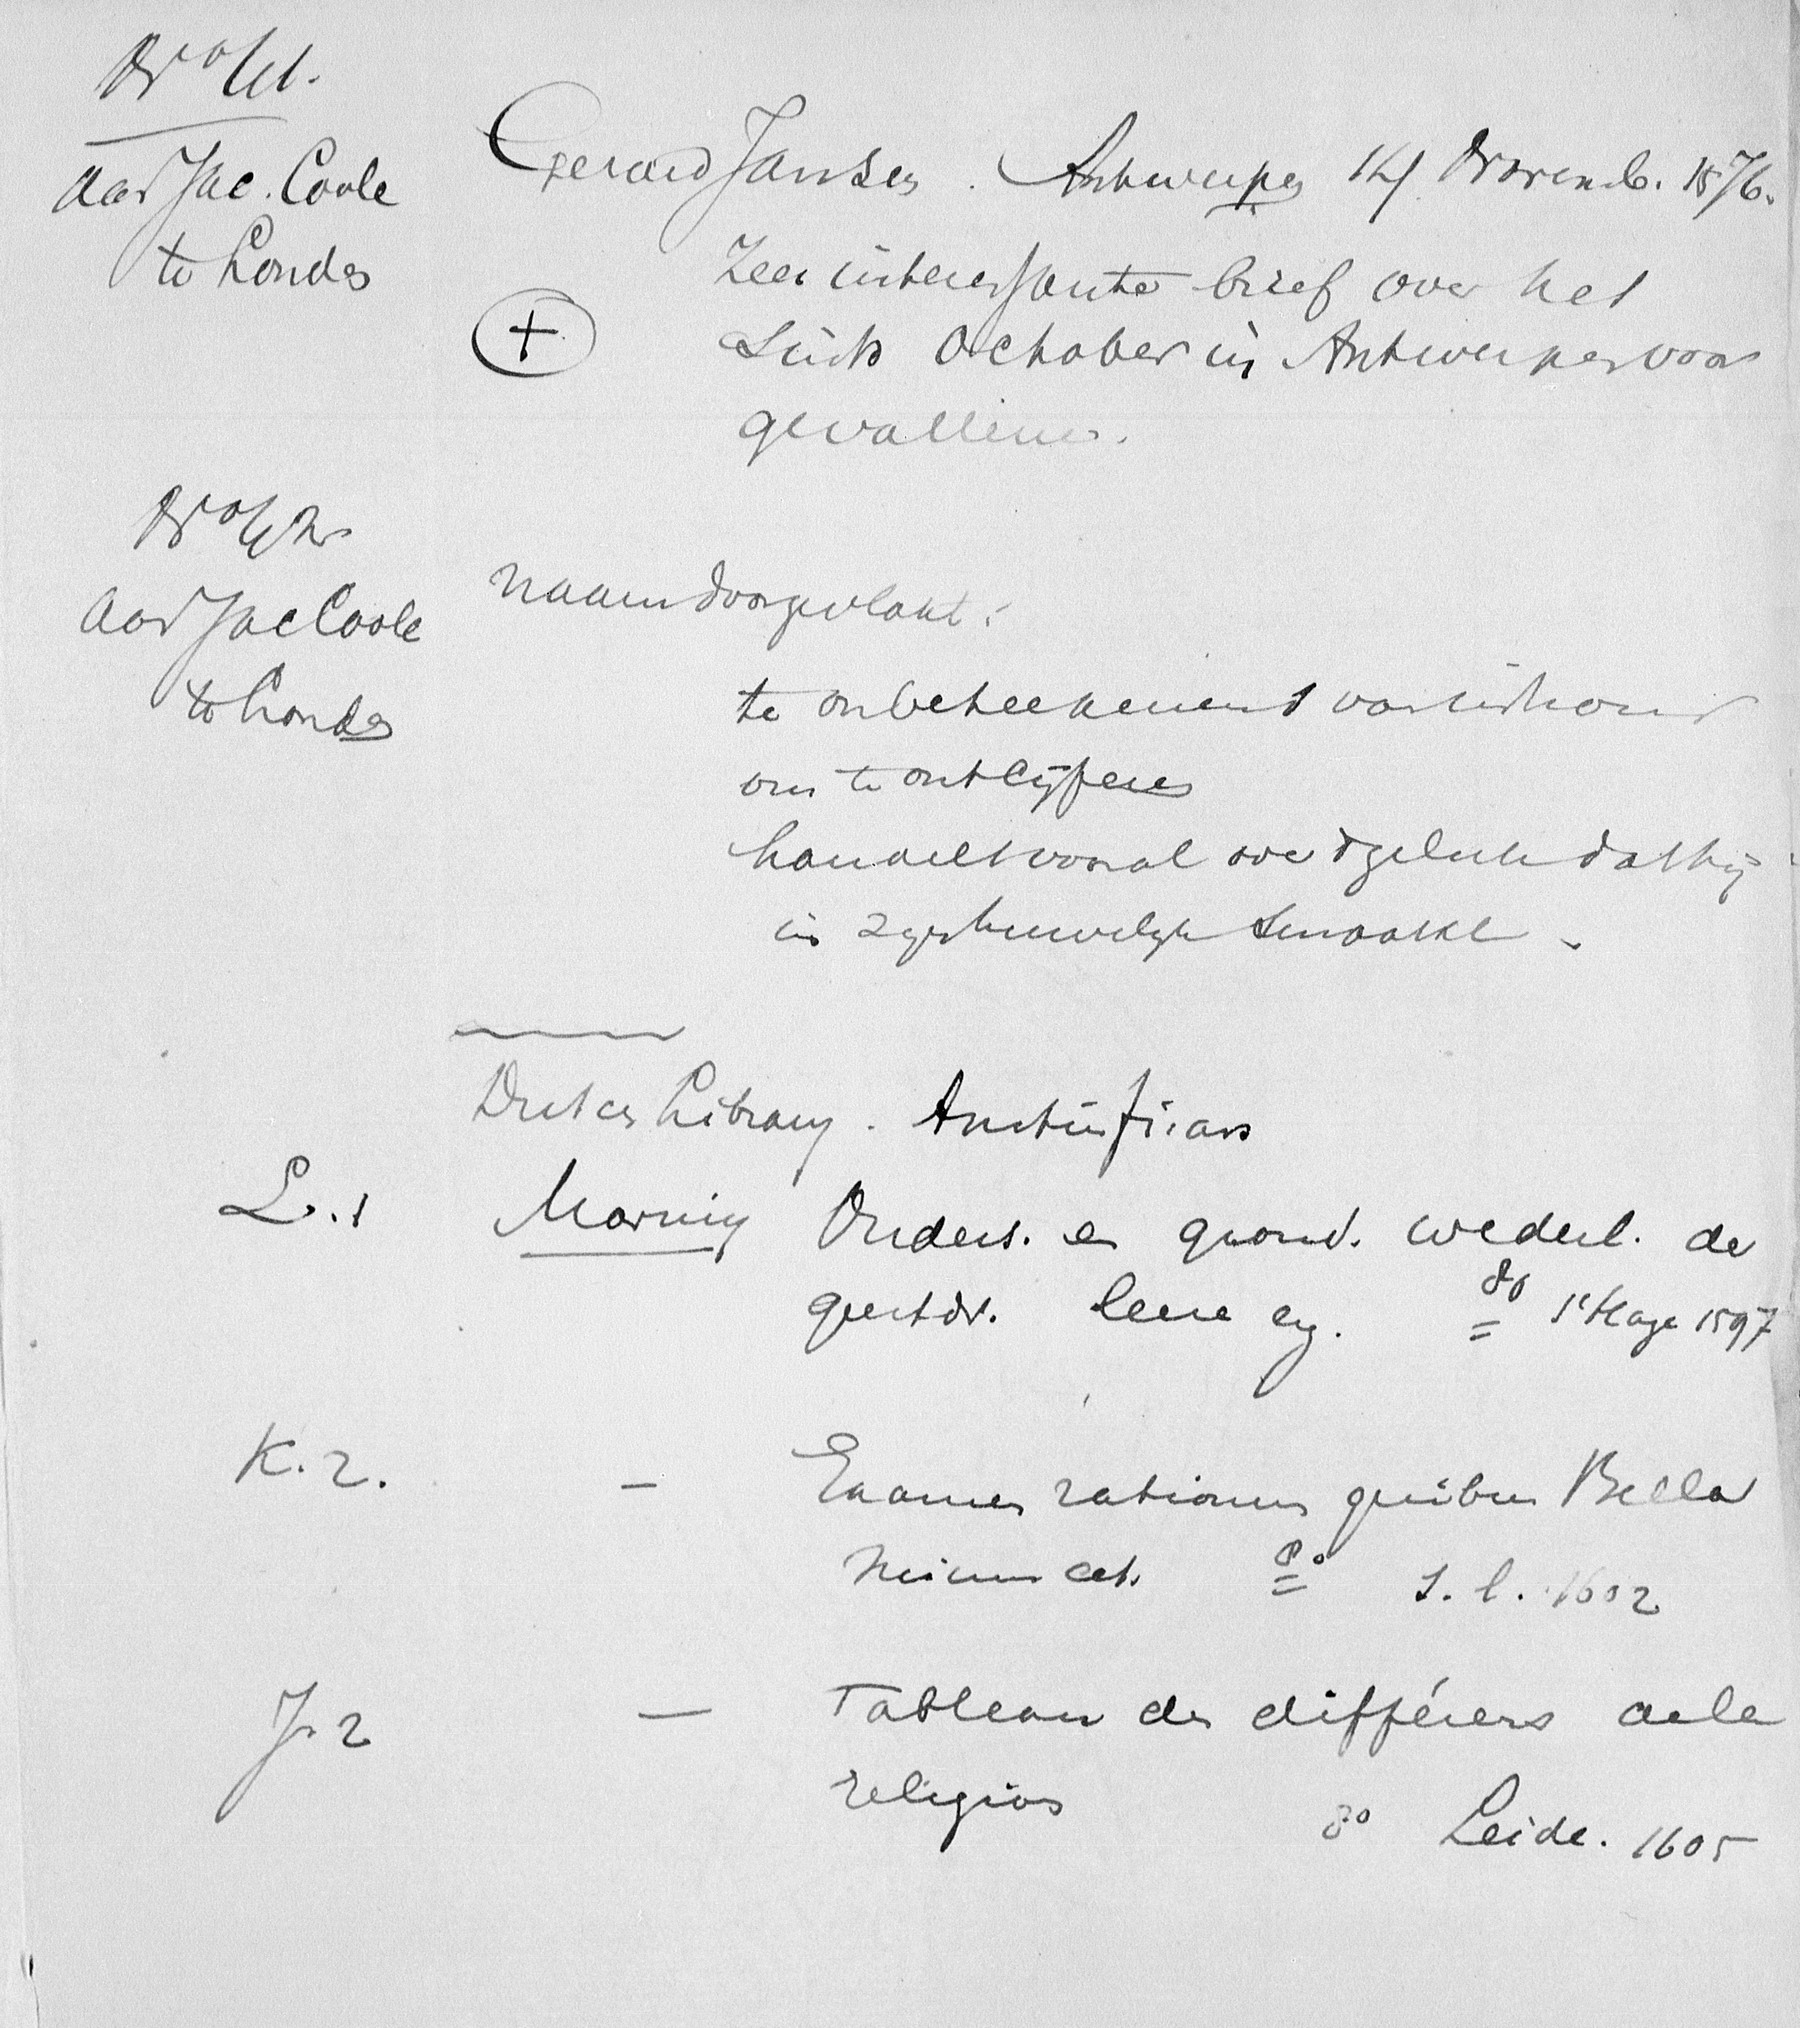 No 41.
Aan Jac. Coole
te Londen
Gerard Jansen. Antwerpen 14 Novemb. 1576.
Zeer interessante brief over het
sinds October in Antwerpen voor
gevallene.
No 42
Aan Jac Coole
te Londen
naam doorgevlakt.
te onbeteekenend van inhoud
om te ontcijferen
handelt vooral over 't geluk dat hij
in zijn huwelijk smaakt.
Dutch Library. Austin friars
L. 1 Marnix Onders. en grond. wederl. de
geestdr. leere enz. 8o s'Hage 1597
K. 2. — Examen rationum quibus Bellar
minum cet. 8o s.l. 1602
J. 2 — Tableau des différens de la
religion 8o Leide. 1605